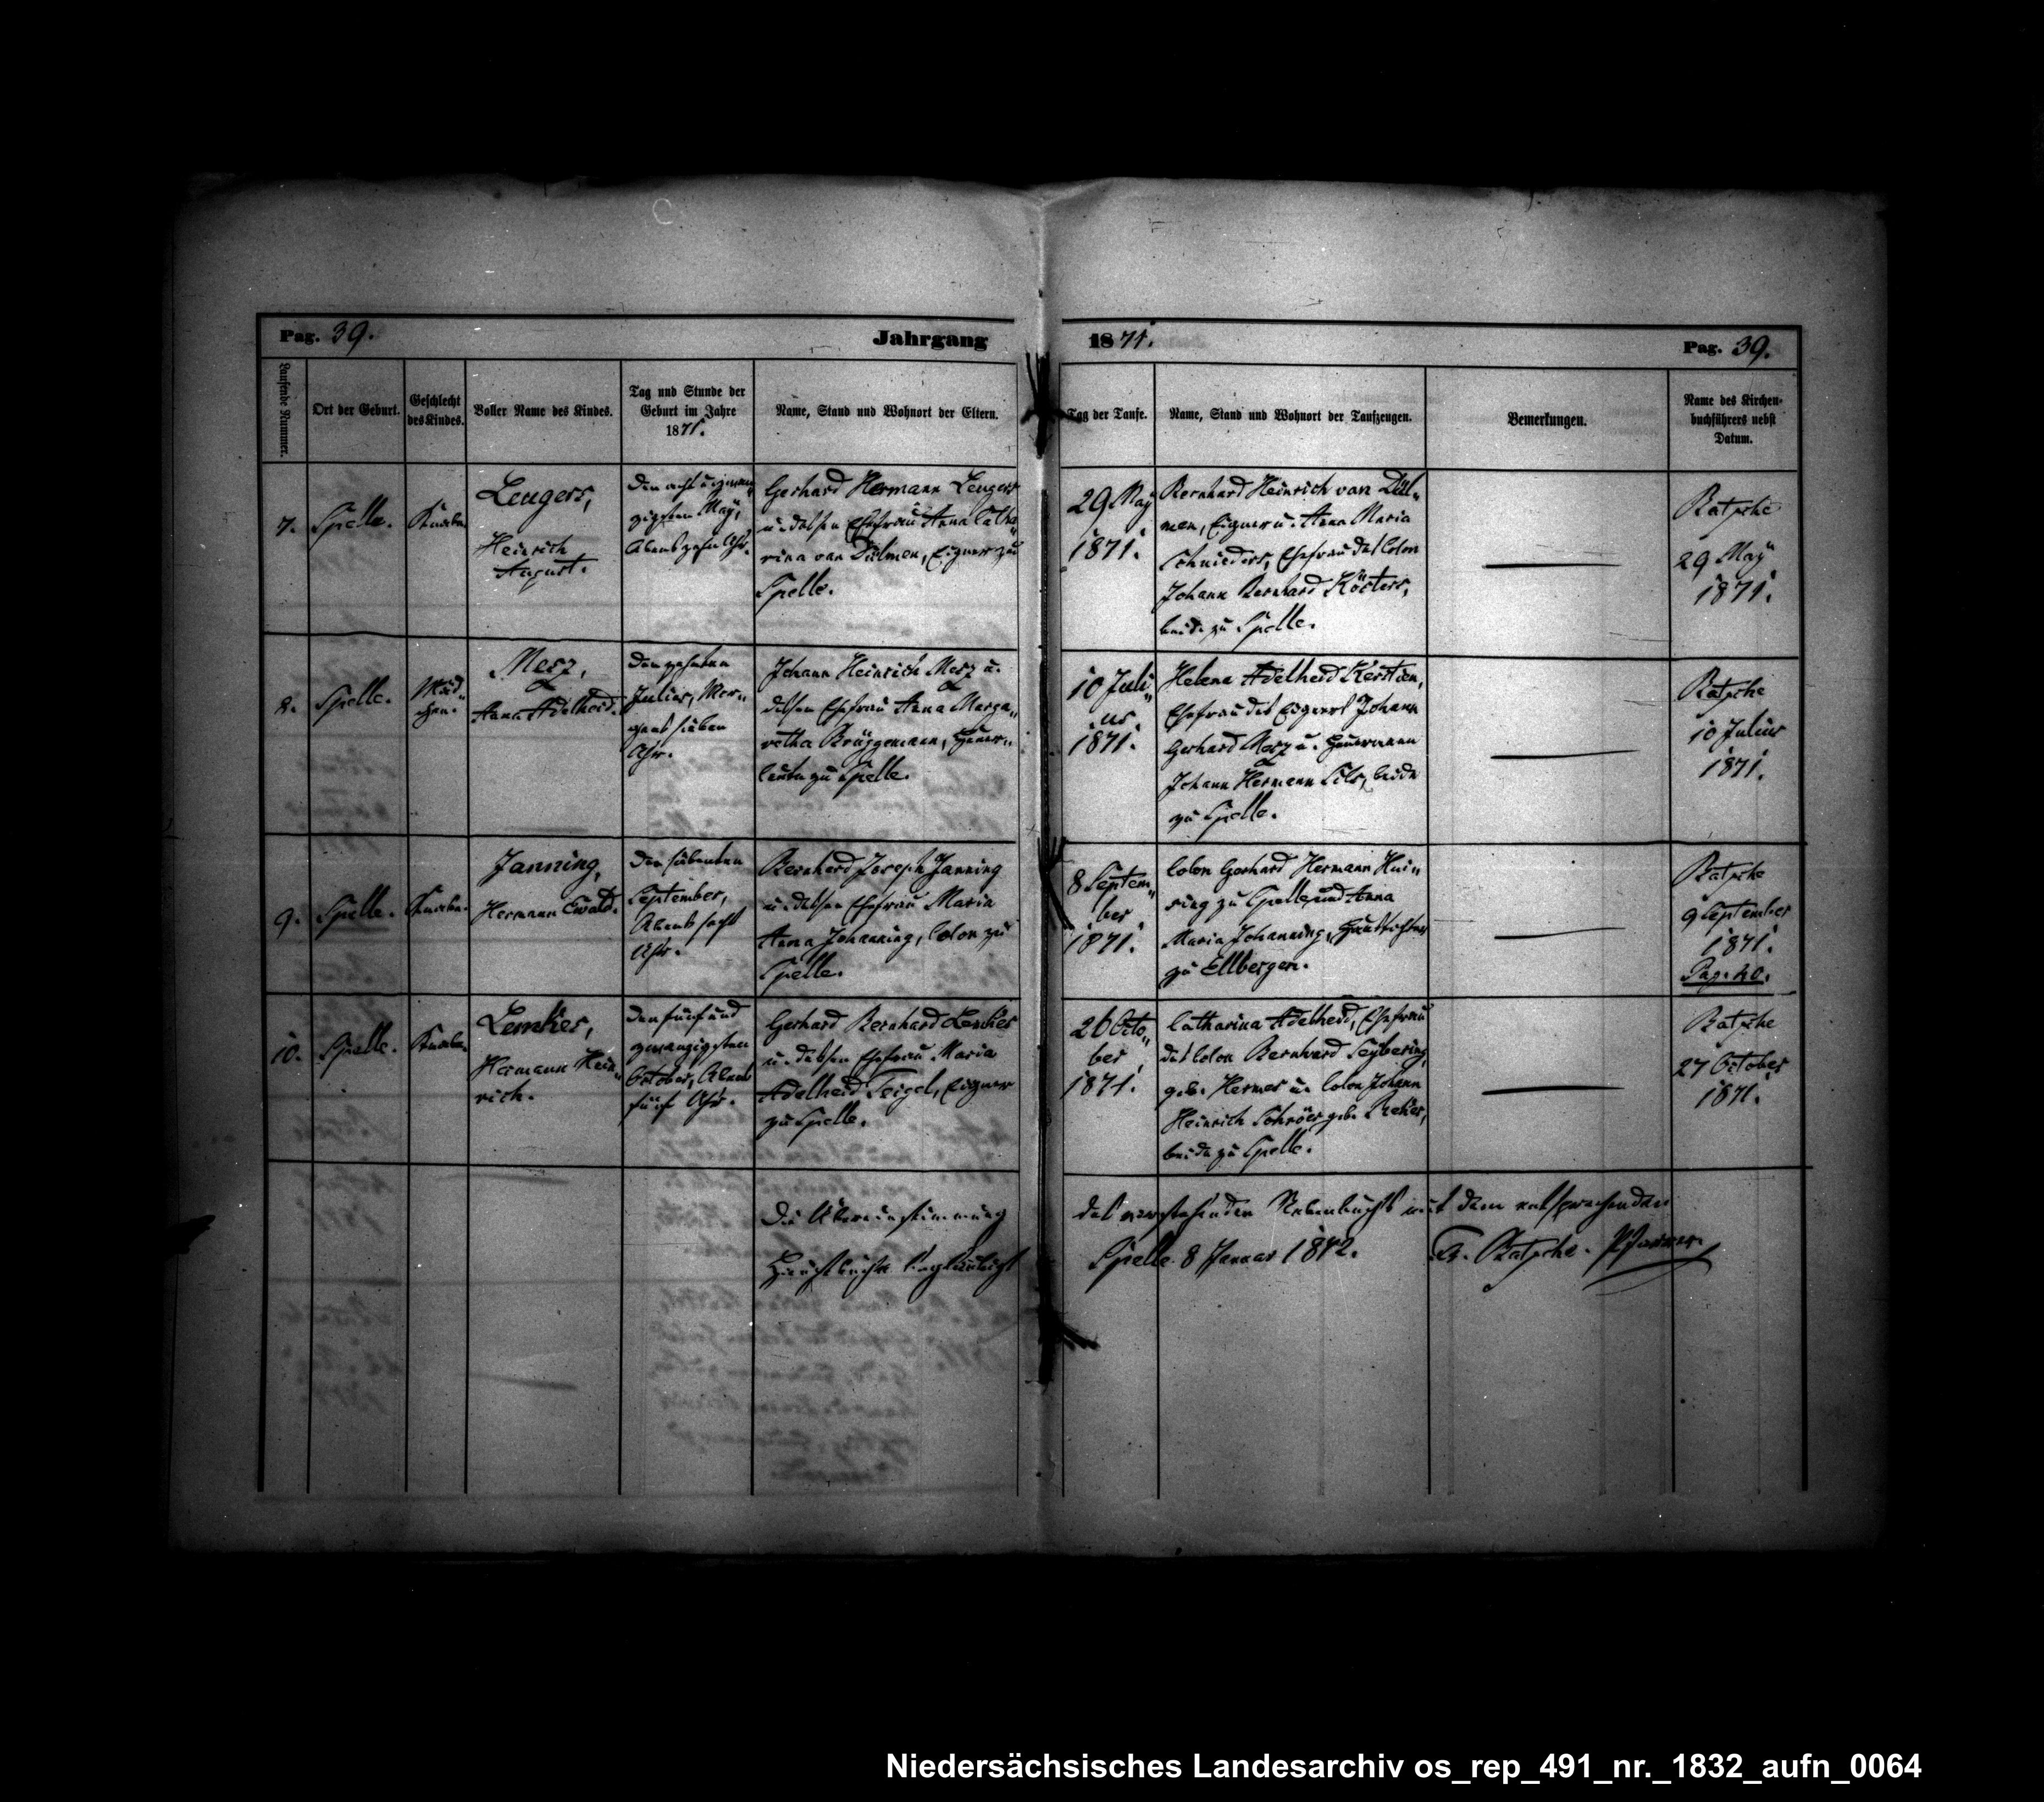 Pag. 39.
Jahrgang
1871.
Pag. 39.
Laufende Nummer.
Ort der Geburt.
Geschlecht
des Kindes.
Voller Name des Kindes.
Tag und Stunde der
Geburt im Jahre
1871.
Name, Stand und Wohnort der Eltern.
Tag der Taufe.
Name, Stand und Wohnort der Taufzeugen.
Bemerkungen.
Name des Kirchen-
buchführers nebst
Datum.
7.
Spelle.
Knabe.
Leugers,
Heinrich
August.
Den acht u. zwan„
zigsten May,
Abends zehn Uhr.
Gerhard Hermann Leugers
u. dessen Ehefrau Anna Catha„
rina van Dülmen, Eigner zu
Spelle.
29 May
1871.
Bernhard Heinrich van Dül„
men, Eigner u. Anna Maria
Schnieders, Ehefrau des Colon
Johann Bernhard Kösters,
beide zu Spelle.
Batsche
29 May
1871.
8.
Spelle.
Mäd„
chen.
Merz,
Anna Adelheid.
Den zehnten
Julius, Mor„
gens sieben
Uhr.
Johann Heinrich Merz u.
dessen Ehefrau Anna Marga„
retha Brüggemann, Heuer„
leute zu Spelle.
10 Juli„
us
1871.
Helena Adelheid Kerstien,
Ehefrau des Eigners Johann
Gerhard Merz u. Heuermann
Johann Hermann Sils, beide
zu Spelle.
Batsche
10 Julius
1871.
9.
Spelle.
Knabe.
Janning,
Hermann Ewald.
Den siebenten
September,
Abends sechs
Uhr.
Bernhard Joseph Janning
u. dessen Ehefrau Maria
Anna Johanning, Colon zu
Spelle.
8 Septem„
ber
1871.
Colon Gerhard Hermann Hui„
ring zu Spelle und Anna
Maria Johanning, Haustochter
zu Ellbergen.
Batsche
9 September
1871.
Pag. 40.
10.
Spelle.
Knabe.
Lemkes,
Hermann Hein„
rich.
Den fünf und
zwanzigsten
October, Abends
fünf Uhr.
Gerhard Bernhard Lemkes
u. dessen Ehefrau Maria
Adelheid Feigel, Eigner
zu Spelle.
26 Octo„
ber
1871.
Catharina Adelheid, Ehefrau
des Colon Bernhard Seybering,
geb. Hermes u. Colon Johann
Heinrich Schröer geb. Reker,
beide zu Spelle.
Batsche
27 October
1871.
Die Übereinstimmung
des vorstehenden Nebenbuchs mit dem entsprechenden
Hauptbuche beglaubigt
Spelle 8 Januar 1872.
Batsche. Pfarrer.
Niedersächsisches Landesarchiv os_rep_491_nr._1832_aufn_0064